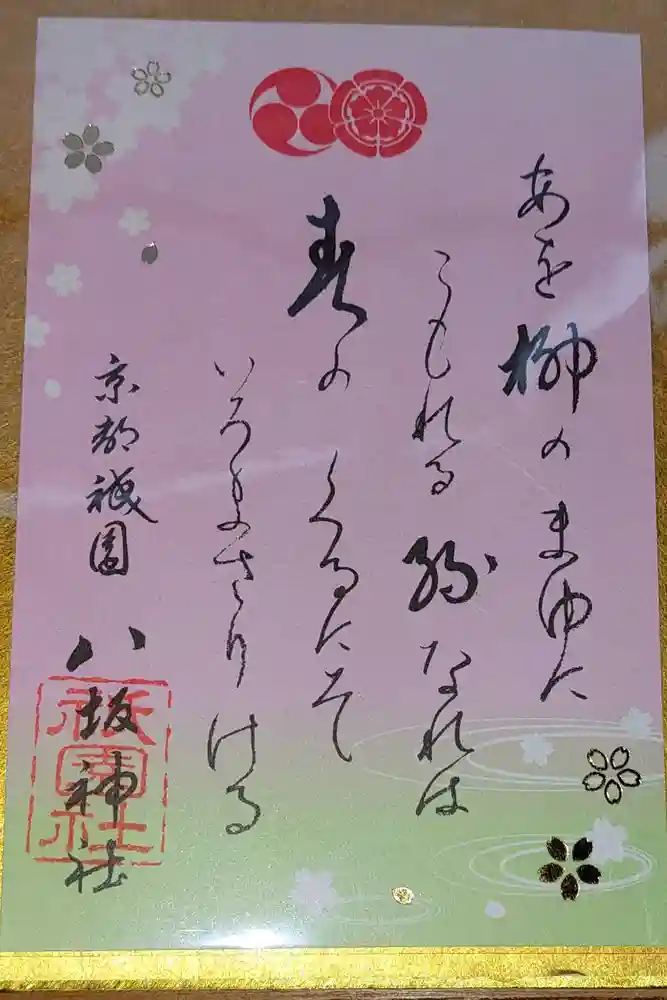 あを柳のまゆに
こもれる絲なれは
春のくるにそ
いろまさりける
京都祇園 八坂神社
祇園社